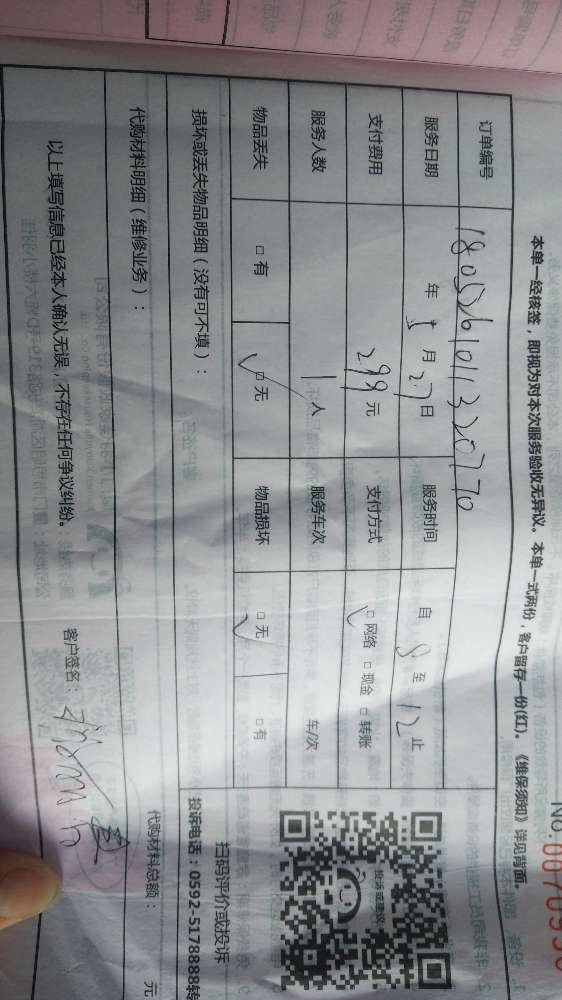 本单一经核签，即视为对本次服务验收无异议。本单一式两份，客户留存一份(红)。《维保须知》详见背面。
订单编号 180526101132070
服务日期 年 5 月 27 日 服务时间 自 8 至 12 止
支付费用 299 元 支付方式 □ 网络 □ 现金 □ 转账
服务人数 1 人 服务车次 车/次
物品丢失 □ 有 □ 无 物品损坏 □ 无 □ 有
损坏或丢失物品明细（没有可不填）：
扫码评价或投诉
投诉电话：0592-5178888转
代购材料明细（维修业务）：
代购材料总额： 元
以上填写信息已经本人确认无误，不存在任何争议纠纷。
客户签名：